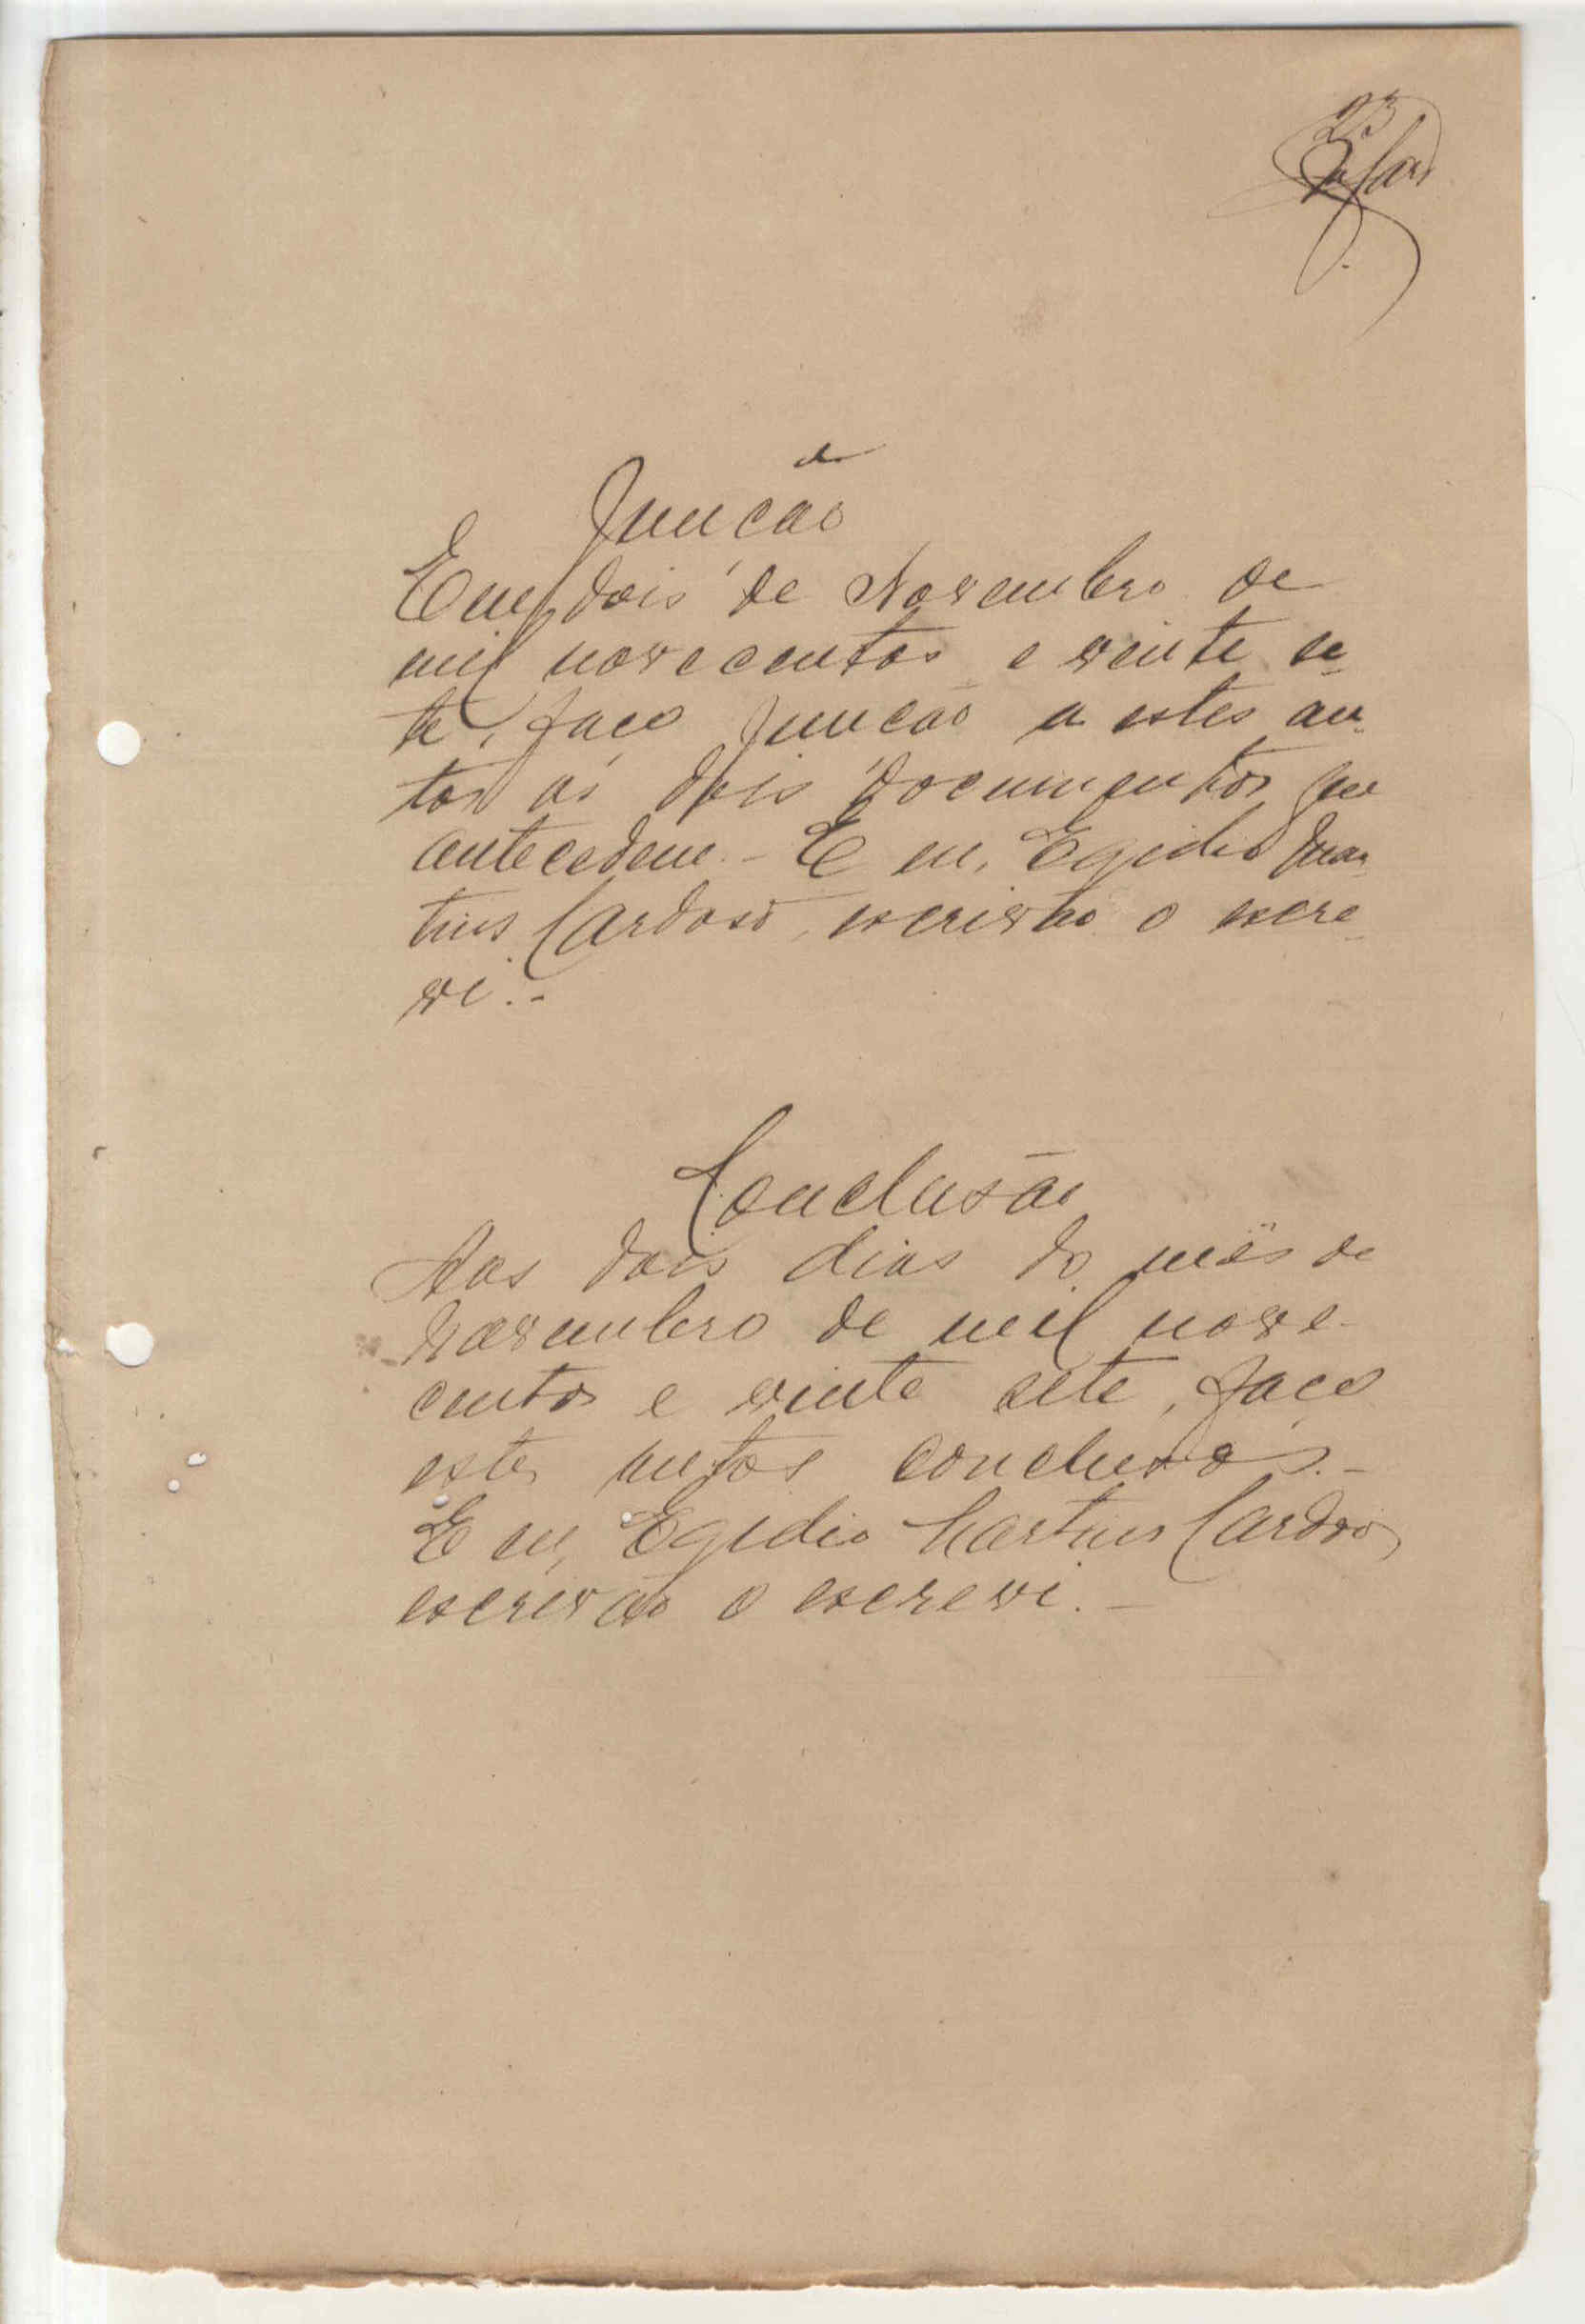 23
Junção
Em dois de Novembro de
mil novecentos e vinte se-
te, faço junção a estes au-
tos os dois documentos que
antecedem. - E eu, Egidio Mar-
tins Cardoso, escrivão o escre-
vi. -
Conclusão
Aos dois dias do mês de
Novembro de mil nove-
centos e vinte sete, faço
estes autos conclusos. -
E eu, Egidio Martins Cardoso,
escrivão o escrevi. -